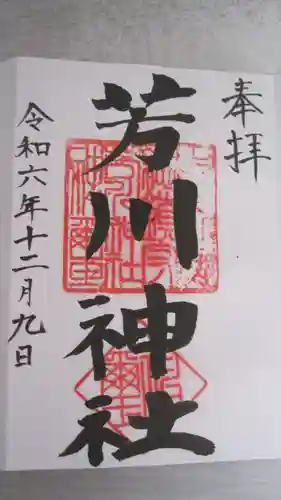 奉拝
芳川神社
令和六年十二月九日